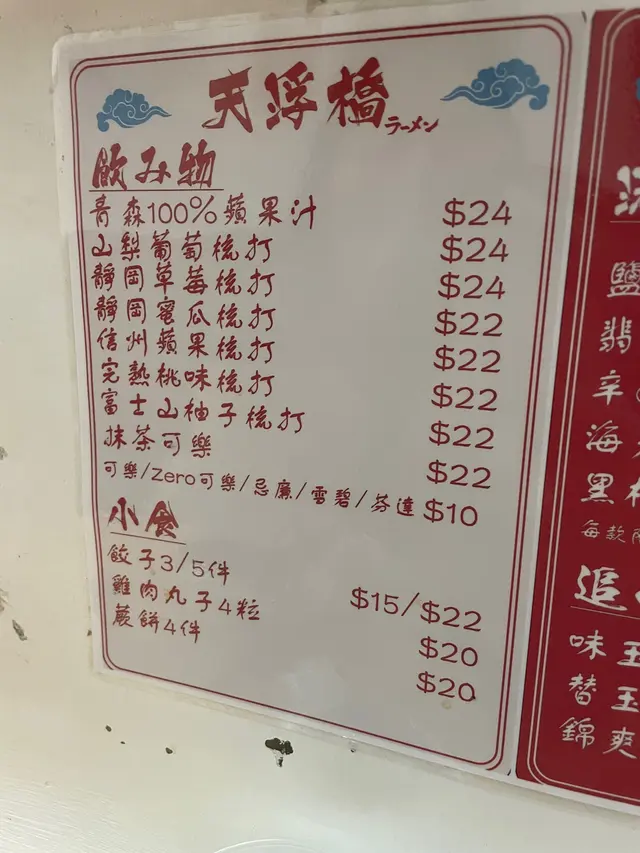 天浮橋ラーメン
飲み物
青森100%蘋果汁 $24
山梨葡萄梳打 $24
靜岡草莓梳打 $24
靜岡蜜瓜梳打 $22
信州蘋果梳打 $22
完熟桃味梳打 $22
富士山柚子梳打 $22
抹茶可樂 $22
可樂/Zero可樂/忌廉/雪碧/芬達 $10
小食
餃子3/5件 $15/$22
雞肉丸子4粒 $20
蕨餅4件 $20
鹽
翡
辛
海
黑
每款
追
味玉
替玉
錦爽